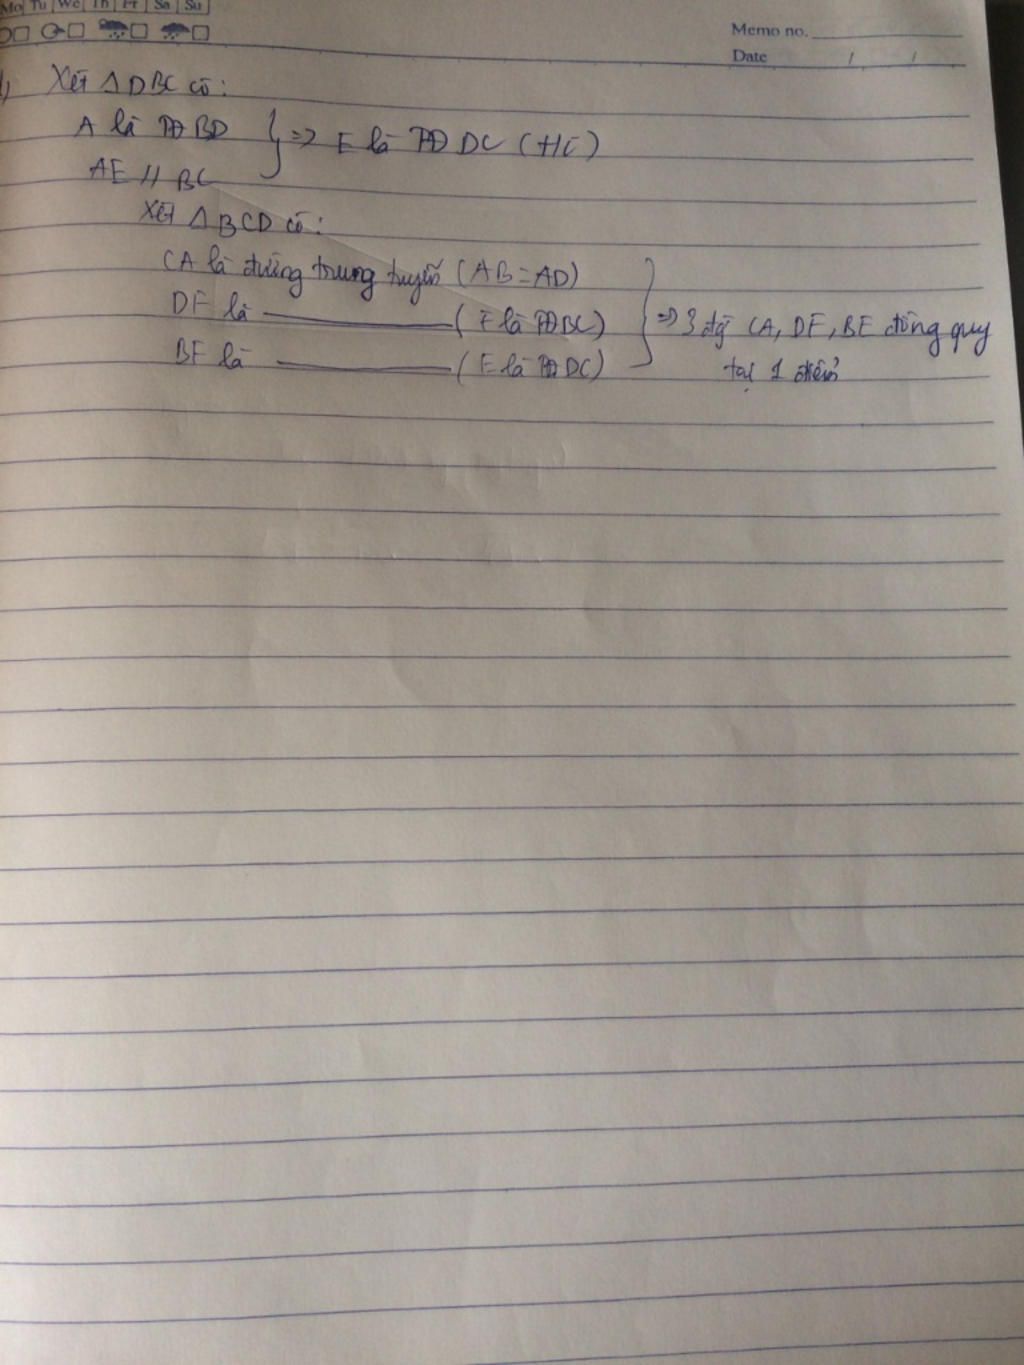 Mo Tu We Th Fr Sa Su
Memo no.
Date / /
d) Xét △DBC có:
A là TĐ BD
AE // BC
} => E là TĐ DC (HC)
Xét △BCD có:
CA là đường trung tuyến (AB=AD)
DF là ———— (F là TĐ BC)
BE là ———— (E là TĐ DC)
} => 3 đg CA, DF, BE đồng quy
tại 1 điểm